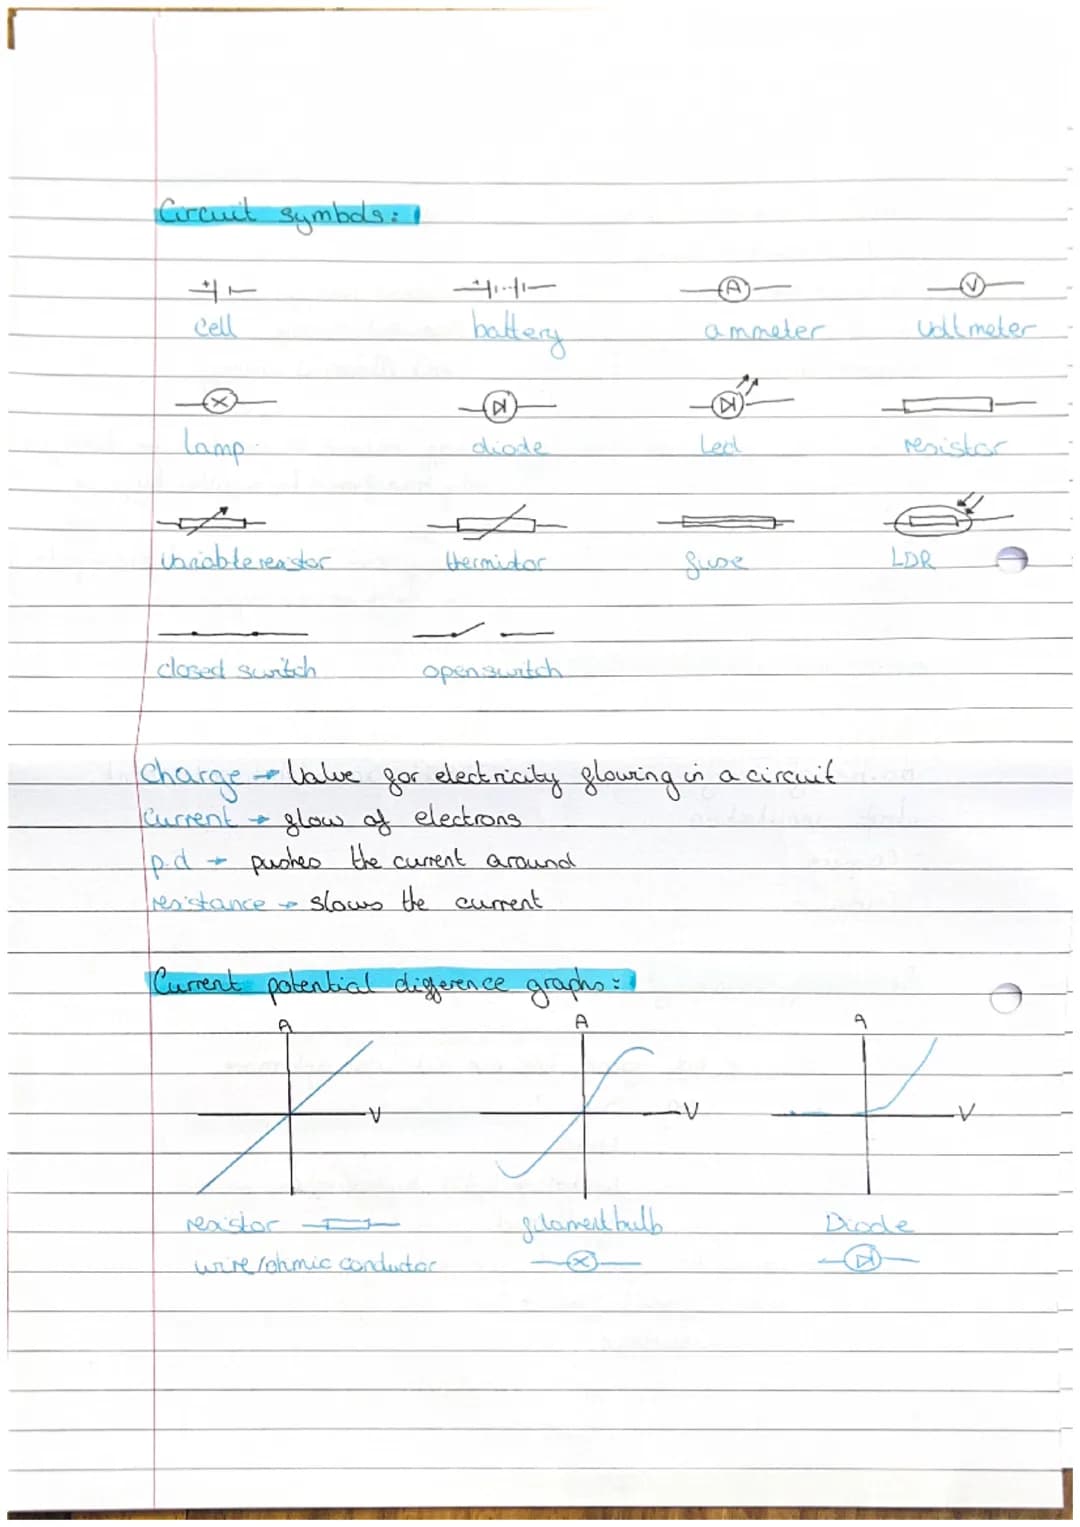 Circuit symbols:
+
+
A
V
cell
battery
ammeter
voltmeter
lamp
diode
Led
resistor
variable resistor
thermistor
fuse
LDR
closed switch
open switch
Charge → Value for electricity flowing in a circuit
Current → flow of electrons
p.d → pushes the current around
resistance → slows the current
Current potential difference graphs:
A
A
A
V
V
V
resistor
filament bulb
Diode
wire/ohmic conductor